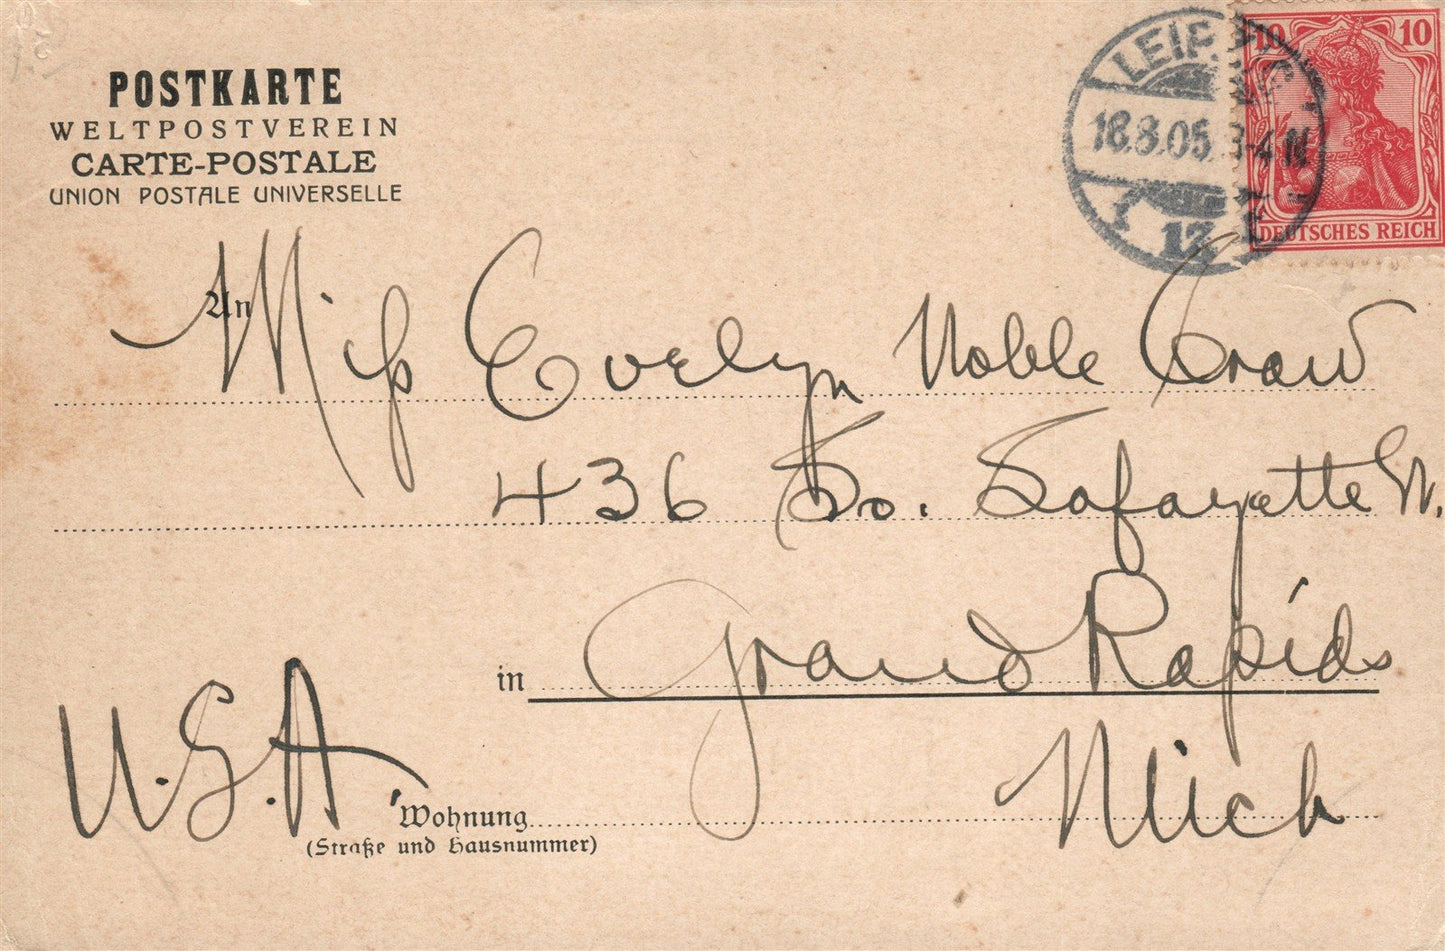 POSTKARTE
WELTPOSTVEREIN
CARTE-POSTALE
UNION POSTALE UNIVERSELLE
LEIPZIG
18.8.05. 3-4 N
13
10 10
DEUTSCHES REICH
An
Miss Evelyn Noble Craw
436 So. Lafayette
in Grand Rapids
Mich
U.S.A.
Wohnung
(Straße und Hausnummer)